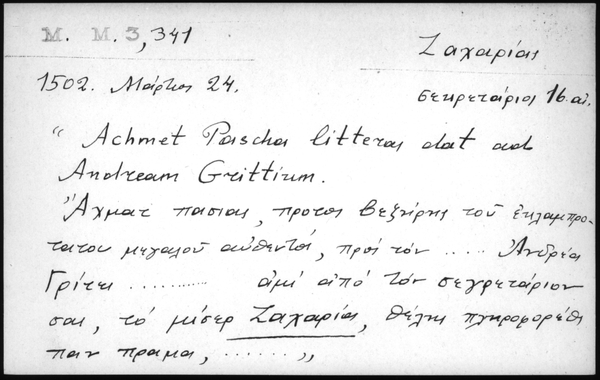 M. M. 3, 341
Ζαχαρίας
1502. Μάρτιος 24.
σεκρετάριος 16. αἰ.
“ Achmet Pascha litteras dat ad
Andream Grittium.
Ἄχματ πασιας, πρωτος βεζηρης τοῦ ἐκλαμπρο-
τατου μεγαλου αὐθεντός, πρός τόν ..... Ἀνδρέα
Γρίτει ........... ἀμί ἀπό τόν σεγρετάριον
σας, τό μίσερ Ζαχαρίας, θέλης πληροφορέθη
παν πραμα, ....... ”